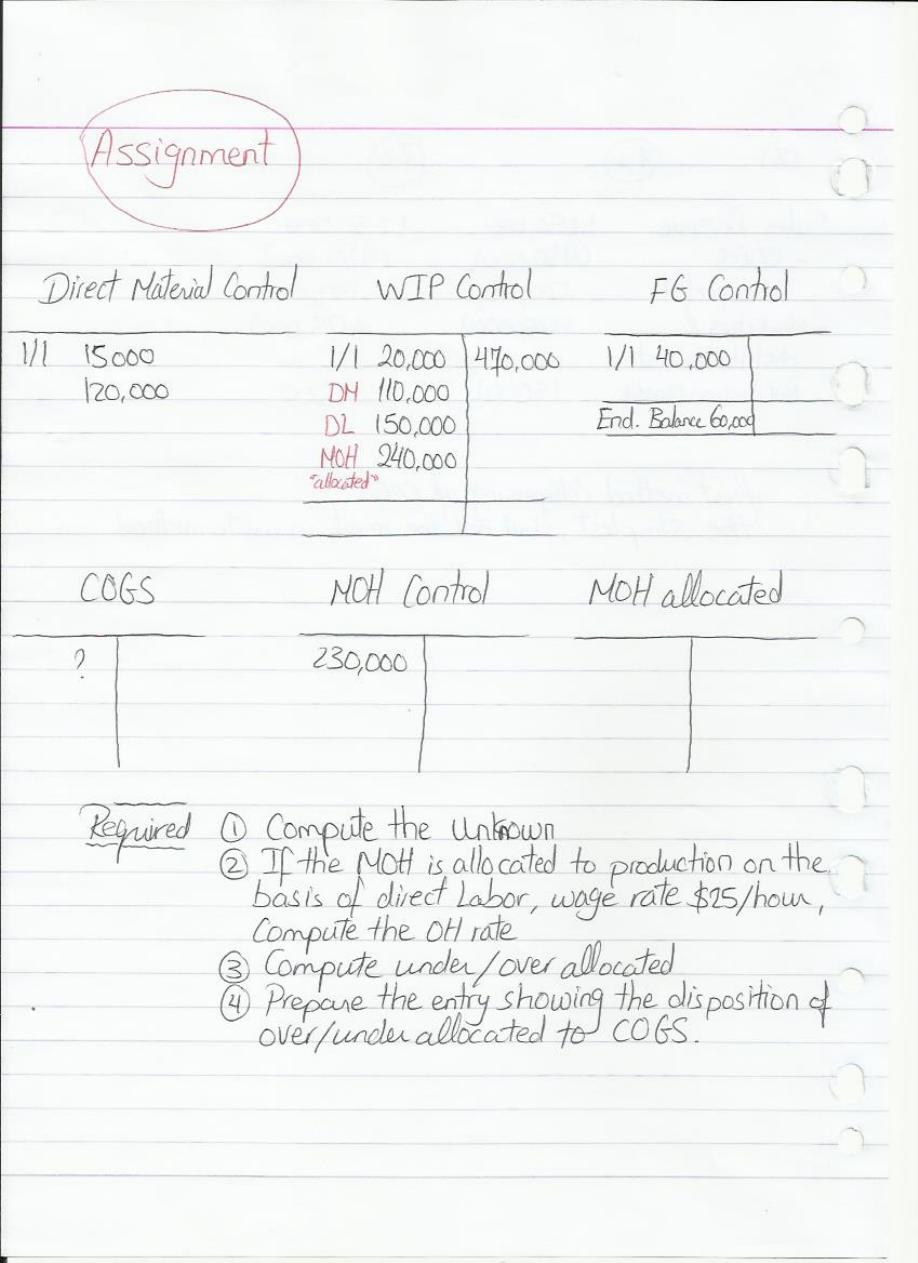 Assignment
Direct Material Control WIP Control FG Control
1/1 15000 1/1 20,000 470,000 1/1 40,000
120,000 DM 110,000
DL 150,000 End. Balance 60,000
MOH 240,000
"allocated"
COGS MOH Control MOH allocated
? 230,000
Required ① Compute the Unknown
② If the MOH is allocated to production on the
basis of direct Labor, wage rate $25/hour,
Compute the OH rate
③ Compute under/over allocated
④ Prepare the entry showing the disposition of
over/under allocated to COGS.